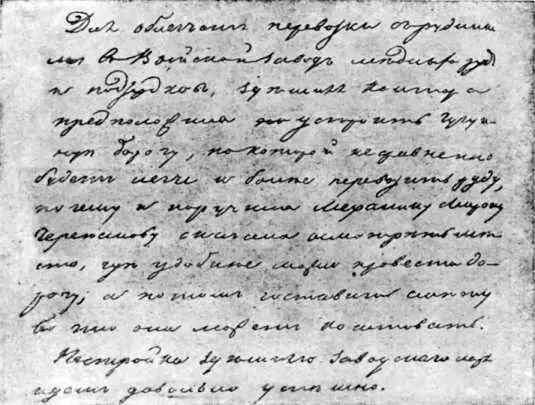 Для облегчения перевозки с рудника
в Выйской завод медных руд
и подрудков, здешняя контора
предположила устроить чугун-
ную дорогу, по которой несравненно
будет легче и более перевозить руду,
почему и поручила Механику Мирону
Черепанову сначала осмотреть ме-
сто, где удобнее можно провести до-
рогу, а потом составить смету
во что она может коштовать.
Постройка здешнего заводского
идет довольно успешно.